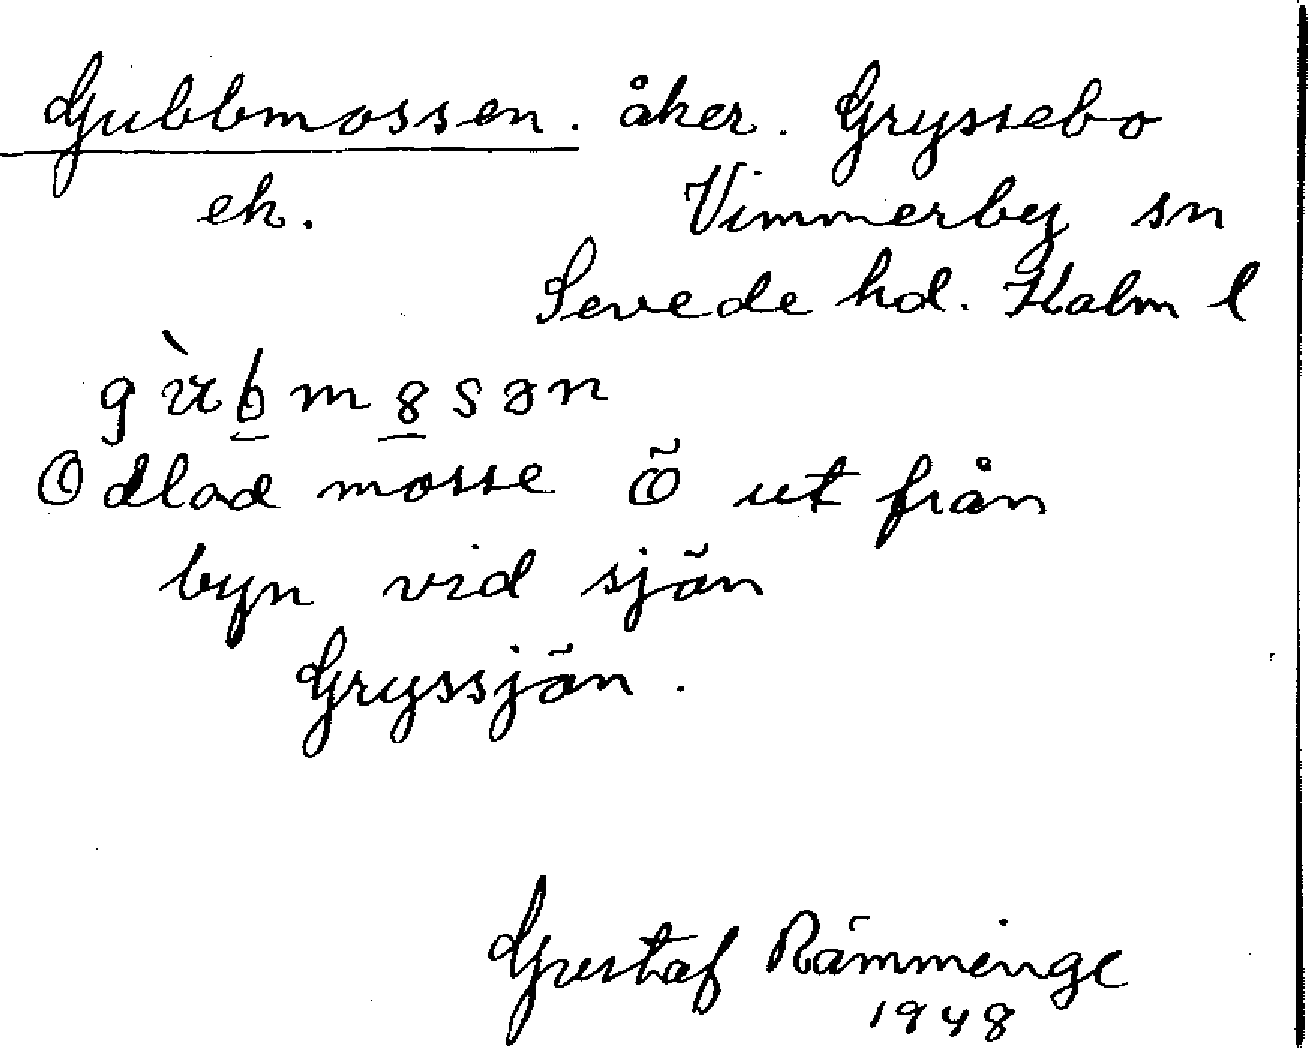 Gubbmossen. åker. Gryssebo
ek. Vimmerby sn
Sevede hd. Kalm l
gùb̲m8̲sən
Odlad mosse Ö ut från
byn vid sjön
Gryssjön.
Gustaf Rämminge
1948